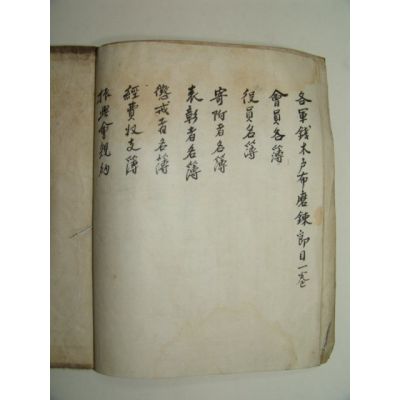 各軍錢木戶布磨鍊節目一卷
會員名簿
役員名簿
寄附者名簿
表彰者名簿
懲戒者名簿
經費收支簿
振興會規約